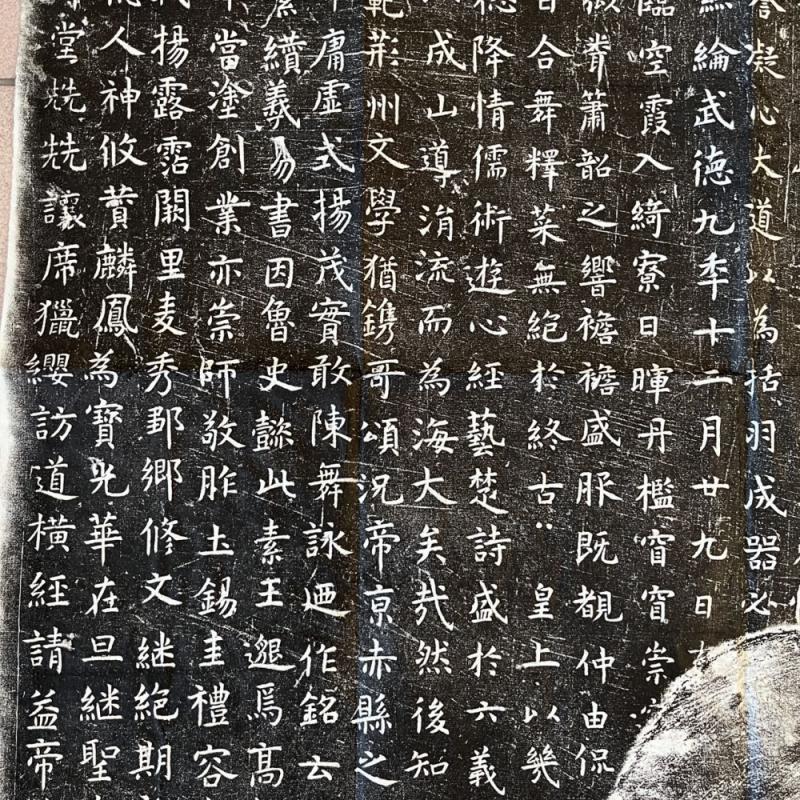 凝心大道以為括羽成器必
綸武德九年十二月廿九日有
臨空霞入綺寮日暉丹檻窅窅崇
微聳簫韶之響襜襜盛服既覩仲由侃
日合舞釋菜無絕於終古 皇上以幾
德降情儒術遊心經藝楚詩盛於六義
成山導涓流而為海大矣哉然後知
範荊州文學猶鐫哥頌況帝京赤縣之
庸虛式揚茂實敢陳舞詠迺作銘云
纘羲易書因魯史懿此素王邈焉高
當塗創業亦崇師敬胙土錫圭禮容
揚露霑闕里麦秀鄉修文継絕期
人神攸賛麟鳳為寶光華在旦継聖
堂兟兟讓席獵纓訪道橫經請益帝